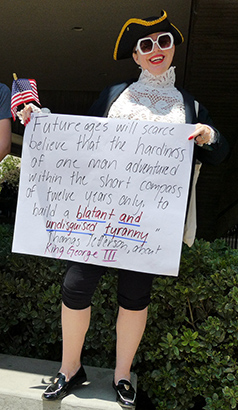 Future ages will scarce
believe that the hardiness
of one man adventured
within the short compass
of twelve years only, to
build a blatant and
undisguised tyranny "
Thomas Jefferson, about
King George III